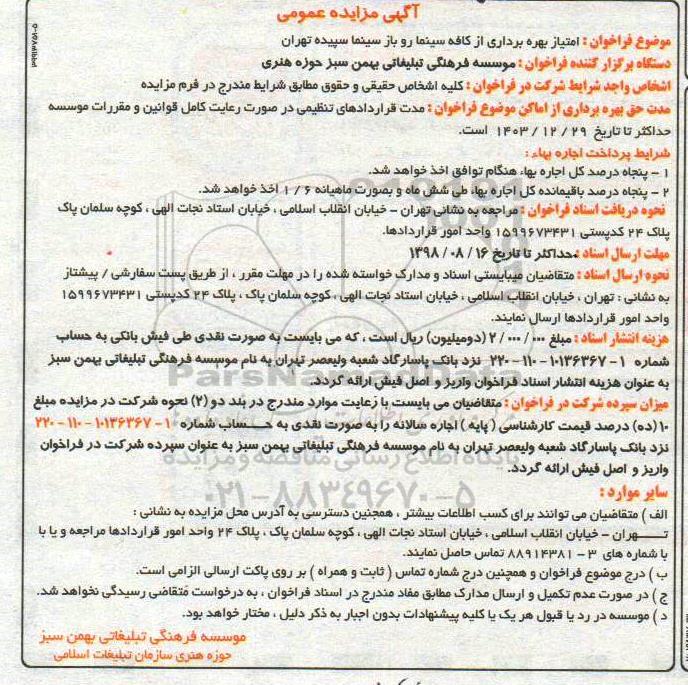 آگهی مزایده عمومی
موضوع فراخوان : امتیاز بهره برداری از کافه سینما رو باز سینما سپیده تهران
دستگاه برگزار کننده فراخوان : موسسه فرهنگی تبلیغاتی بهمن سبز حوزه هنری
اشخاص واجد شرایط شرکت در فراخوان : کلیه اشخاص حقیقی و حقوق مطابق شرایط مندرج در فرم مزایده
مدت حق بهره برداری از اماکن موضوع فراخوان : مدت قراردادهای تنظیمی در صورت رعایت کامل قوانین و مقررات موسسه
حداکثر تا تاریخ ۲۹ / ۱۲ / ۱۴۰۳ است.
شرایط پرداخت اجاره بهاء :
۱ - پنجاه درصد کل اجاره بهاء هنگام توافق اخذ خواهد شد.
۲ - پنجاه درصد باقیمانده کل اجاره بهاء، طی شش ماه و بصورت ماهیانه ۶ / ۱ اخذ خواهد شد.
نحوه دریافت اسناد فراخوان : مراجعه به نشانی تهران - خیابان انقلاب اسلامی ، خیابان استاد نجات الهی ، کوچه سلمان پاک
پلاک ۲۴ کدپستی ۱۵۹۹۶۷۳۴۳۱ واحد امور قراردادها.
مهلت ارسال اسناد : حداکثر تا تاریخ ۱۶ / ۰۸ / ۱۳۹۸
نحوه ارسال اسناد : متقاضیان میبایستی اسناد و مدارک خواسته شده را در مهلت مقرر ، از طریق پست سفارشی / پیشتاز
به نشانی : تهران ، خیابان انقلاب اسلامی ، خیابان استاد نجات الهی ، کوچه سلمان پاک ، پلاک ۲۴ کدپستی ۱۵۹۹۶۷۳۴۳۱
واحد امور قراردادها ارسال نمایند.
هزینه انتشار اسناد : مبلغ ۰۰۰ / ۰۰۰ / ۲ (دومیلیون) ریال است ، که می بایست به صورت نقدی طی فیش بانکی به حساب
شماره ۱ - ۱۰۱۳۶۳۶۷ - ۱۱۰ - ۲۲۰ نزد بانک پاسارگاد شعبه ولیعصر تهران به نام موسسه فرهنگی تبلیغاتی بهمن سبز
به عنوان هزینه انتشار اسناد فراخوان واریز و اصل فیش ارائه گردد.
میزان سپرده شرکت در فراخوان : متقاضیان می بایست با رعایت موارد مندرج در بند دو (۲) نحوه شرکت در مزایده مبلغ
۱۰ (ده) درصد قیمت کارشناسی ( پایه ) اجاره سالانه را به صورت نقدی به حساب شماره ۱ - ۱۰۱۳۶۳۶۷ - ۱۱۰ - ۲۲۰
نزد بانک پاسارگاد شعبه ولیعصر تهران به نام موسسه فرهنگی تبلیغاتی بهمن سبز به عنوان سپرده شرکت در فراخوان
واریز و اصل فیش ارائه گردد.
سایر موارد :
الف ) متقاضیان می توانند برای کسب اطلاعات بیشتر ، همچنین دسترسی به آدرس محل مزایده به نشانی :
تهران - خیابان انقلاب اسلامی ، خیابان استاد نجات الهی ، کوچه سلمان پاک ، پلاک ۲۴ واحد امور قراردادها مراجعه و یا با
با شماره های ۳ - ۸۸۹۱۴۳۸۱ تماس حاصل نمایند.
ب ) درج موضوع فراخوان و همچنین درج شماره تماس ( ثابت و همراه ) بر روی پاکت ارسالی الزامی است.
ج ) در صورت عدم تکمیل و ارسال مدارک مطابق مفاد مندرج در اسناد فراخوان ، به درخواست متقاضی رسیدگی نخواهد شد.
د ) موسسه در رد یا قبول هر یک یا کلیه پیشنهادات بدون اجبار به ذکر دلیل ، مختار خواهد بود.
موسسه فرهنگی تبلیغاتی بهمن سبز
حوزه هنری سازمان تبلیغات اسلامی
ParsNamadData
پایگاه اطلاع رسانی مناقصه و مزایده
۰۲۱-۸۸۳۴۹۶۷۰-۵